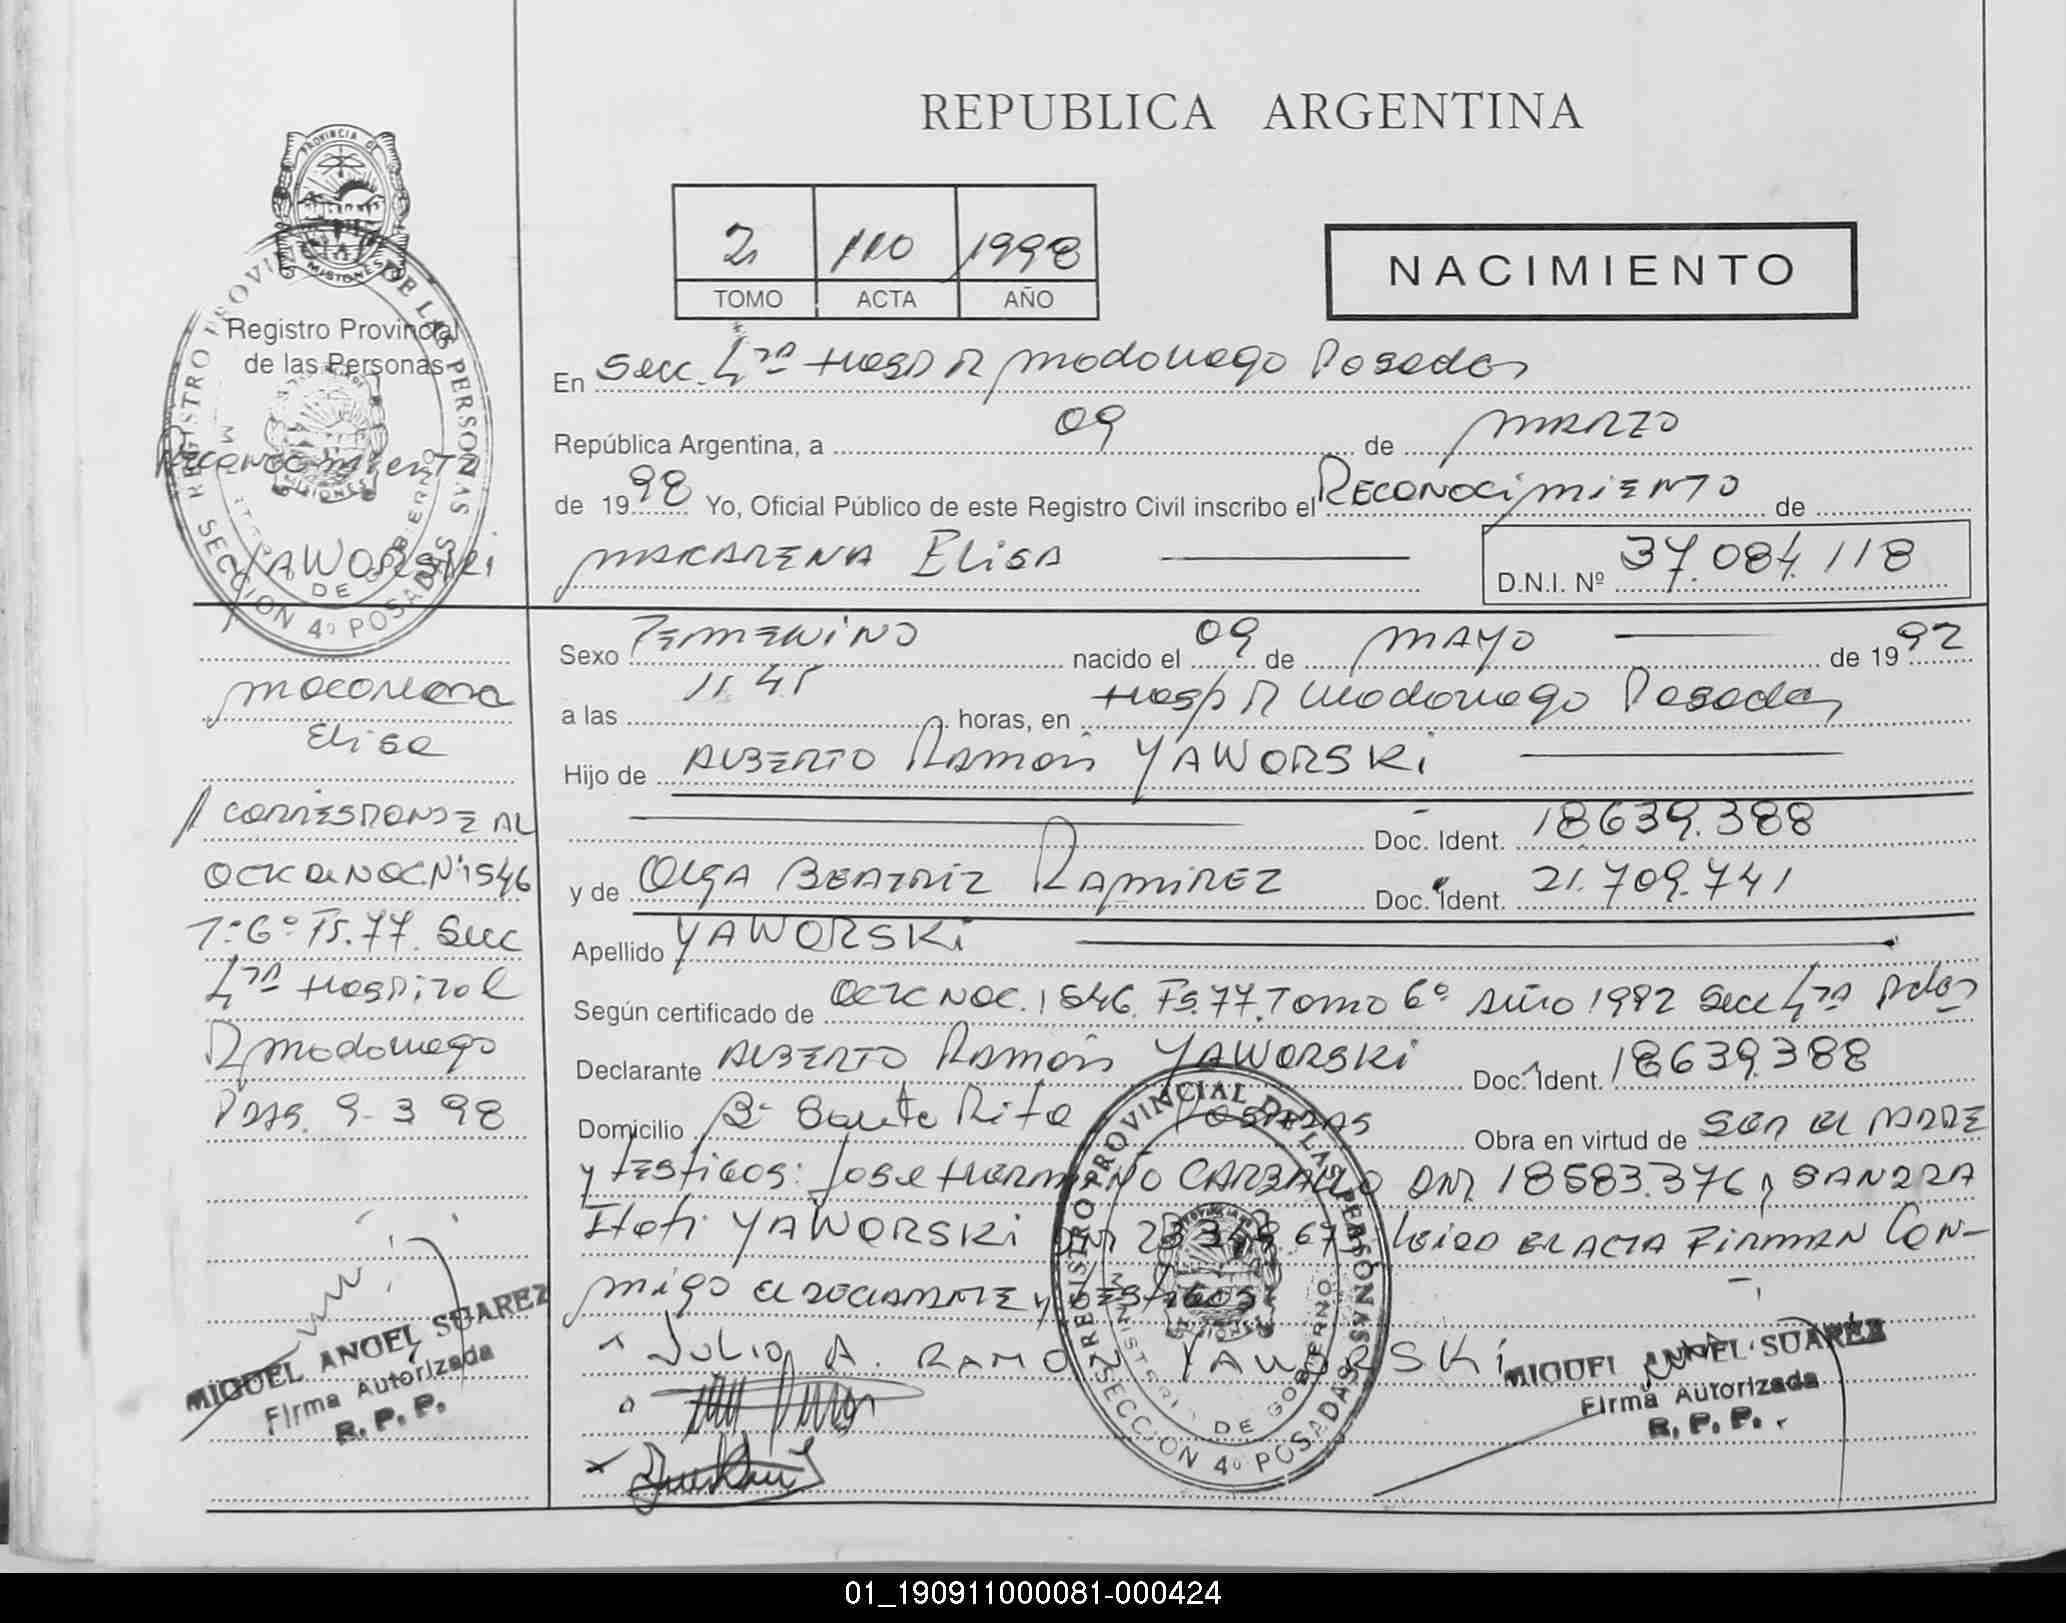 REPUBLICA ARGENTINA
PROVINCIA DE
MISIONES
Registro Provincial
de las Personas
REGISTRO PROVINCIAL DE LAS PERSONAS
SECCION 4º POSADAS
Reconocimiento
YAWORSKI
2 110 1998
TOMO ACTA AÑO
NACIMIENTO
En Secc. 4ta Hosp R Madariaga Posadas
República Argentina, a 09 de MARZO
de 1998 Yo, Oficial Público de este Registro Civil inscribo el RECONOCIMIENTO de
MACARENA Elisa D.N.I. Nº 37.084.118
Sexo FEMENINO nacido el 09 de MAYO de 1992
a las 11.45 horas, en Hosp R Madariaga Posadas
Hijo de ALBERTO Ramón YAWORSKi
Doc. Ident. 18639.388
y de OLGA BEATRIZ RAMIREZ Doc. Ident. 21.709.741
Apellido YAWORSKi
Según certificado de ACTA NAC. 1546. Fs.77. Tomo 6º Año 1992 Secc 4ta Pdas
Declarante ALBERTO Ramón YAWORSKi Doc. Ident. 18639.388
Domicilio Bº Santa Rita POSADAS Obra en virtud de SER EL PADRE
y testigos: Jose HERMINIO CARBALLO DNI. 18583.376 y SANDRA
Itati YAWORSKi DNI 23 67 Leida EL ACTA FIRMAN CON-
migo EL DECLARANTE y testigos
JULIO A. RAMON YAWORSKi
MIGUEL ANGEL SUAREZ
Firma Autorizada
R. P. P.
REGISTRO PROVINCIAL DE LAS PERSONAS
MINISTERIO DE GOBIERNO
SECCION 4º POSADAS
Macarena
Elisa
CORRESPONDE AL
ACTA DE NAC.Nº1546
Tº6º Fs.77. Secc
4ta Hospital
R Madariaga
Pdas. 9-3 98
MIGUEL ANGEL SUAREZ
Firma Autorizada
R. P. P.
01_190911000081-000424